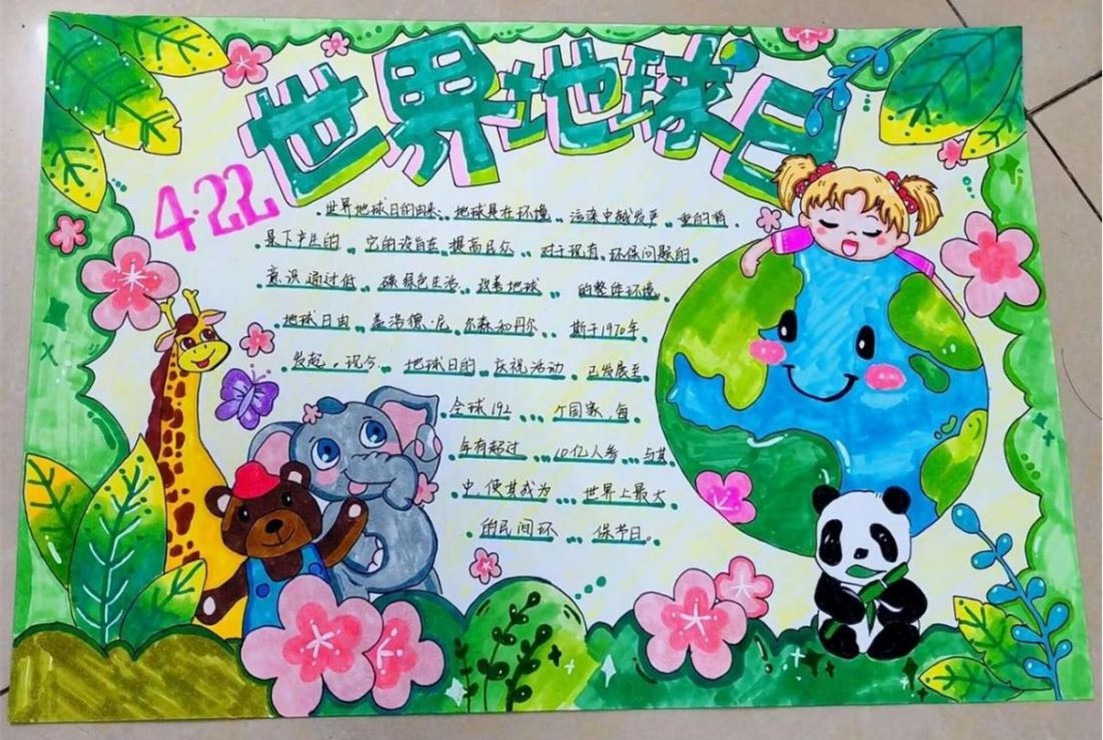 世界地球日
4.22
世界地球日的由来, 地球是在环境 污染中越发严 重的背
景下产生的 它的设旨在提高民众 对于现有 环保问题的
意识通过低 碳绿色生活 改善地球 的整体环境
地球日由 盖洛德·尼 尔森和丹尔 斯于1970年
发起。现今 地球日的 庆祝活动 已发展至
全球192 个国家,每
年有超过 10亿人参 与其
中,使其成为 世界上最大
的民间环 保节日。